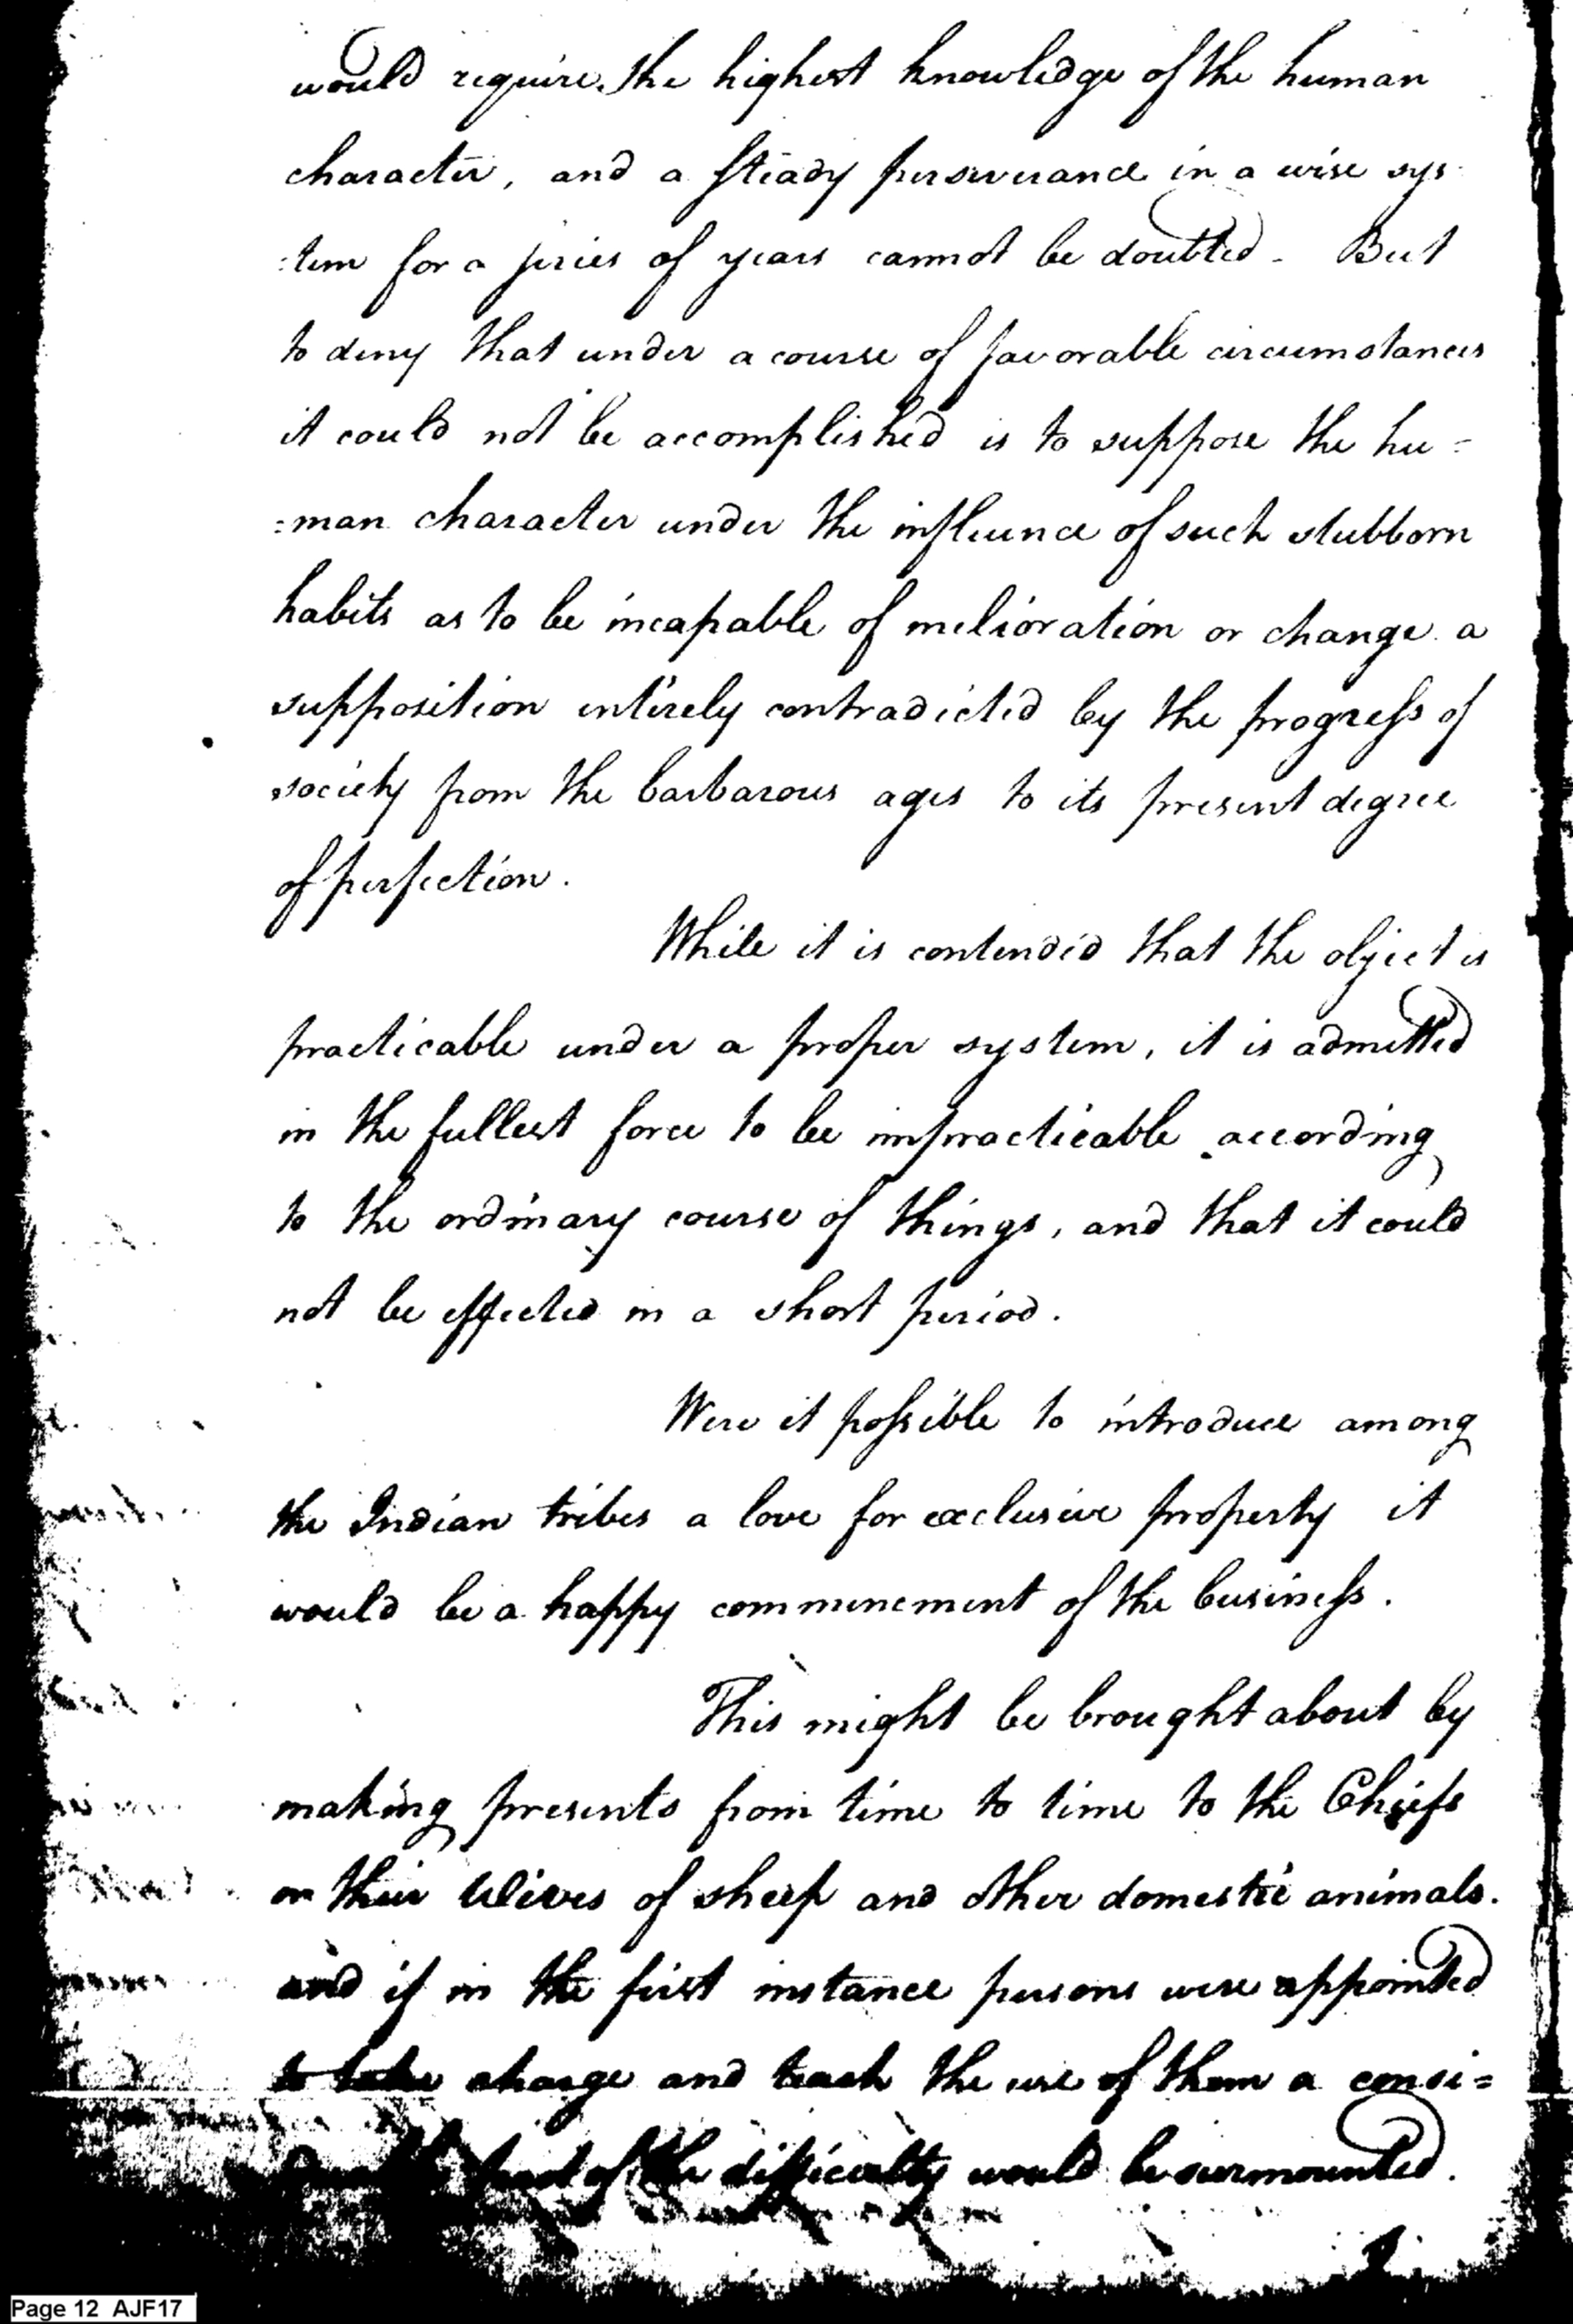 would require, the highest knowledge of the human
character, and a steady perseverance in a wise sys
:tem for a series of years cannot be doubted - But
to deny that under a course of favorable circumstances
it could not be accomplished is to suppose the hu=
=man character under the influence of such stubborn
habits as to be incapable of melioration or change a
supposition entirely contradicted by the progress of
society from the barbarous ages to its present degree
of perfection.
While it is contended that the object is
practicable under a proper system, it is admitted
in the fullest force to be impracticable according
to the ordinary course of things, and that it could
not be effected in a short period.
Were it possible to introduce among
the Indian tribes a love for exclusive property it
would be a happy commencement of the business.
This might be brought about by
making presents from time to time to the Chiefs
or their Wives of sheep and other domestic animals.
and if in the first instance persons were appointed
to take charge and teach the use of them a consi=
part of the difficulty would be surmounted.
Page 12 AJF17